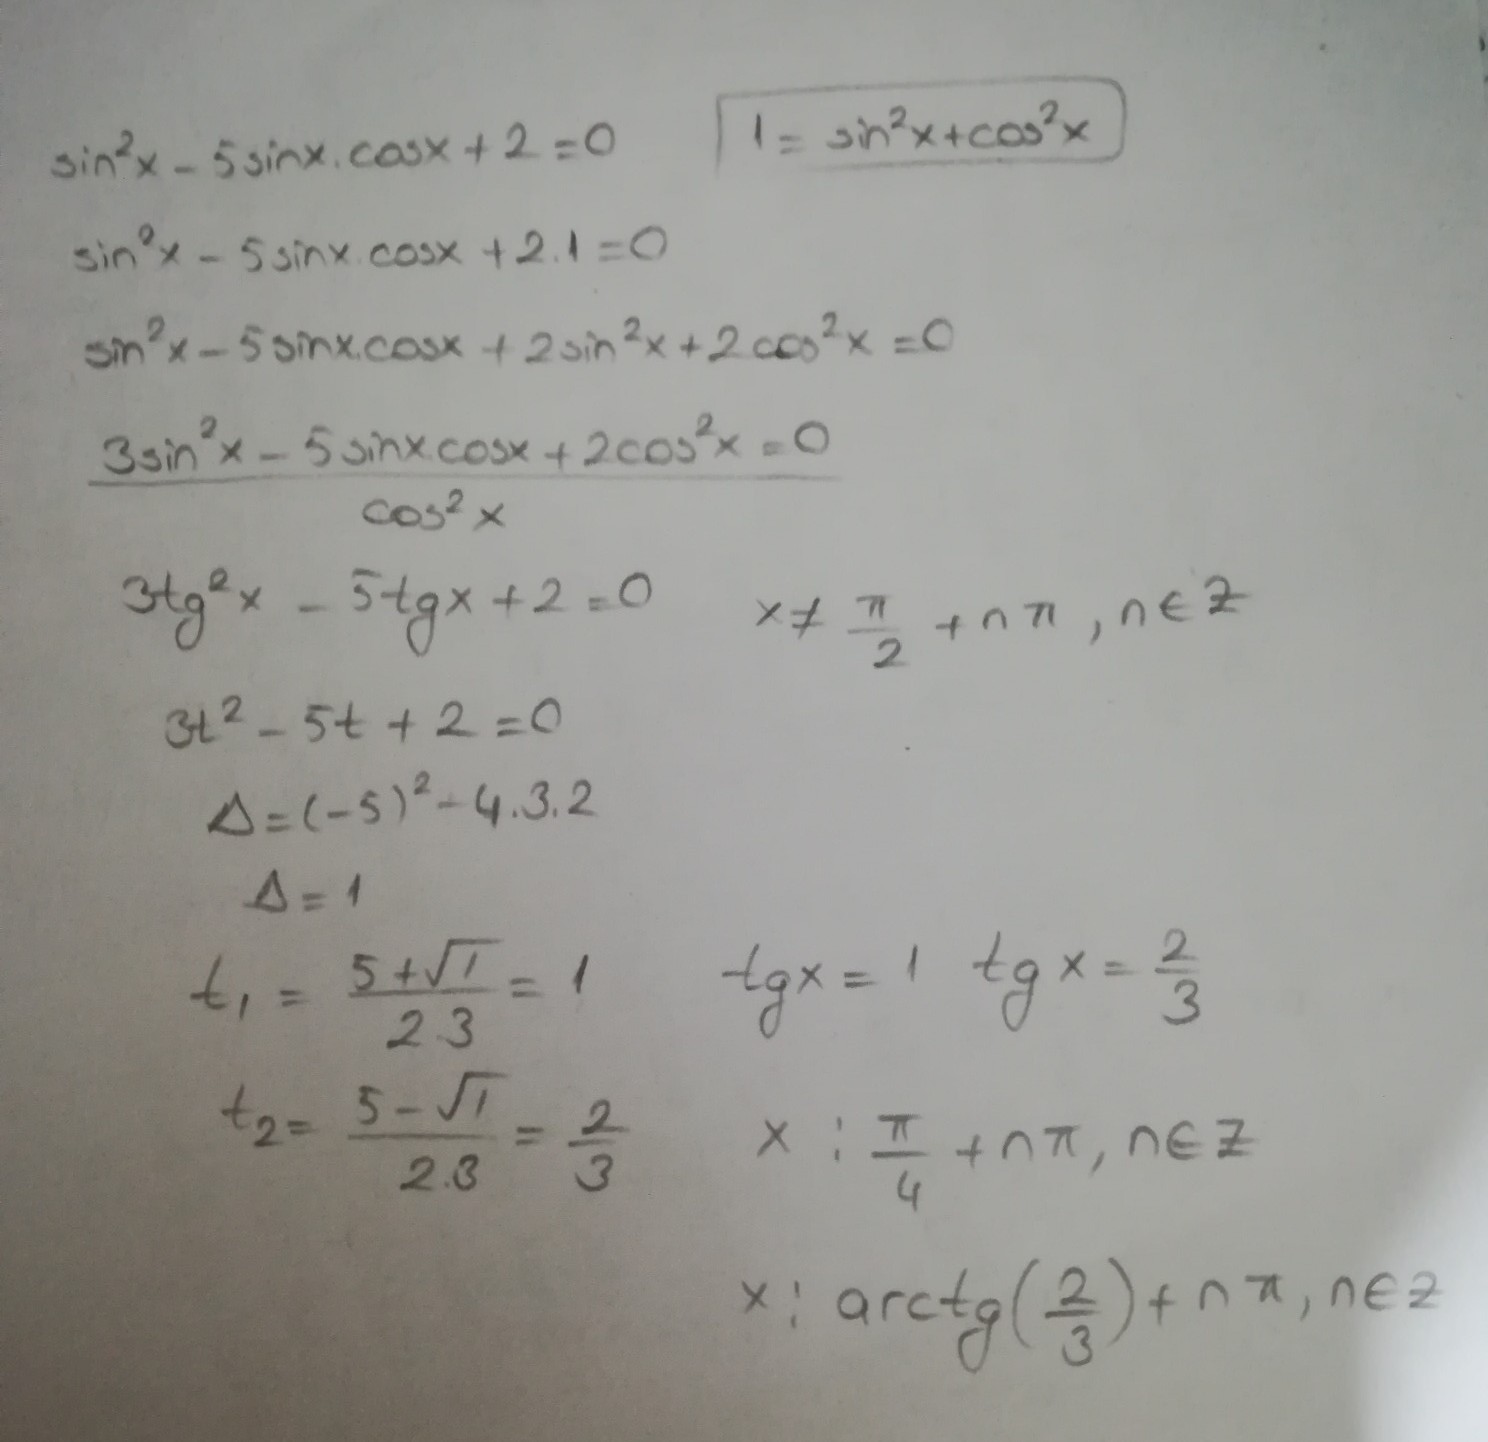 sin²x - 5sinx.cosx + 2 = 0
1 = sin²x + cos²x
sin²x - 5sinx.cosx + 2.1 = 0
sin²x - 5sinx.cosx + 2sin²x + 2cos²x = 0
3sin²x - 5sinx.cosx + 2cos²x = 0
cos²x
3tg²x - 5tgx + 2 = 0
x ≠ π/2 + nπ, n∈Z
3t² - 5t + 2 = 0
Δ = (-5)² - 4.3.2
Δ = 1
t₁ = (5+√1)/2.3 = 1
tgx = 1 tgx = 2/3
t₂ = (5-√1)/2.3 = 2/3
x : π/4 + nπ, n∈Z
x : arctg(2/3) + nπ, n∈Z